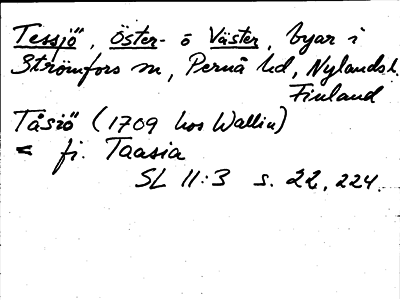 Tessjö, Öster- o Väster, byar i
Strömfors sn, Pernå hd, Nylands l.
Finland
Tåsiö (1709 hos Wallin)
< fi. Taasia
SL 11:3 s. 22, 224.